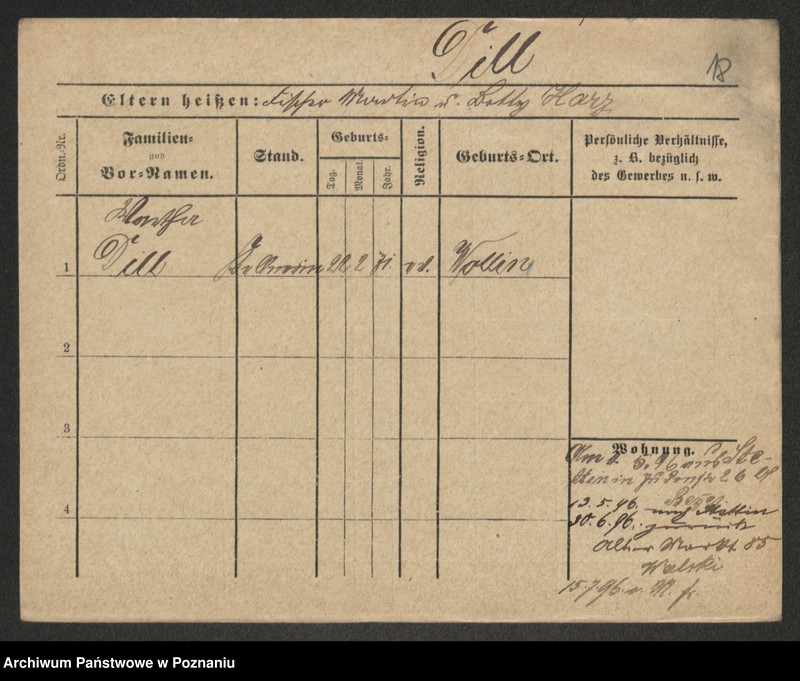 Till
18
Eltern heißen: Martin u. Betty Harz
Ordn.-Nr.
Familien-
und
Vor-Namen.
Stand.
Geburts-
Tag.
Monat.
Jahr.
Religion.
Geburts-Ort.
Persönliche Verhältnisse,
z. B. bezüglich
des Gewerbes u. s. w.
Martha
1 Till 22 2 71 Wollin
2
3
4
Wohnung.
Am 96 aus Ste-
26
13.5.96. nach Stettin
30.6.96. zurück
Alter Markt 85
Walski
15.7.96 n.
Archiwum Państwowe w Poznaniu